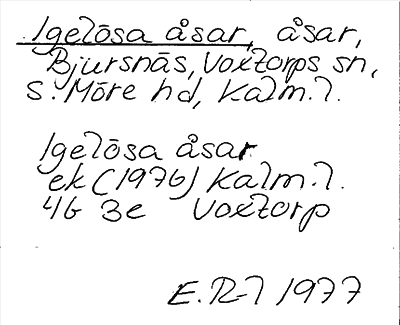 Igelösa åsar, åsar,
Bjursnäs, Voxtorps sn,
S. Möre hd, Kalm. l.
Igelösa åsar
ek (1976) Kalm. l.
4G 3e Voxtorp
E. R-l 1977